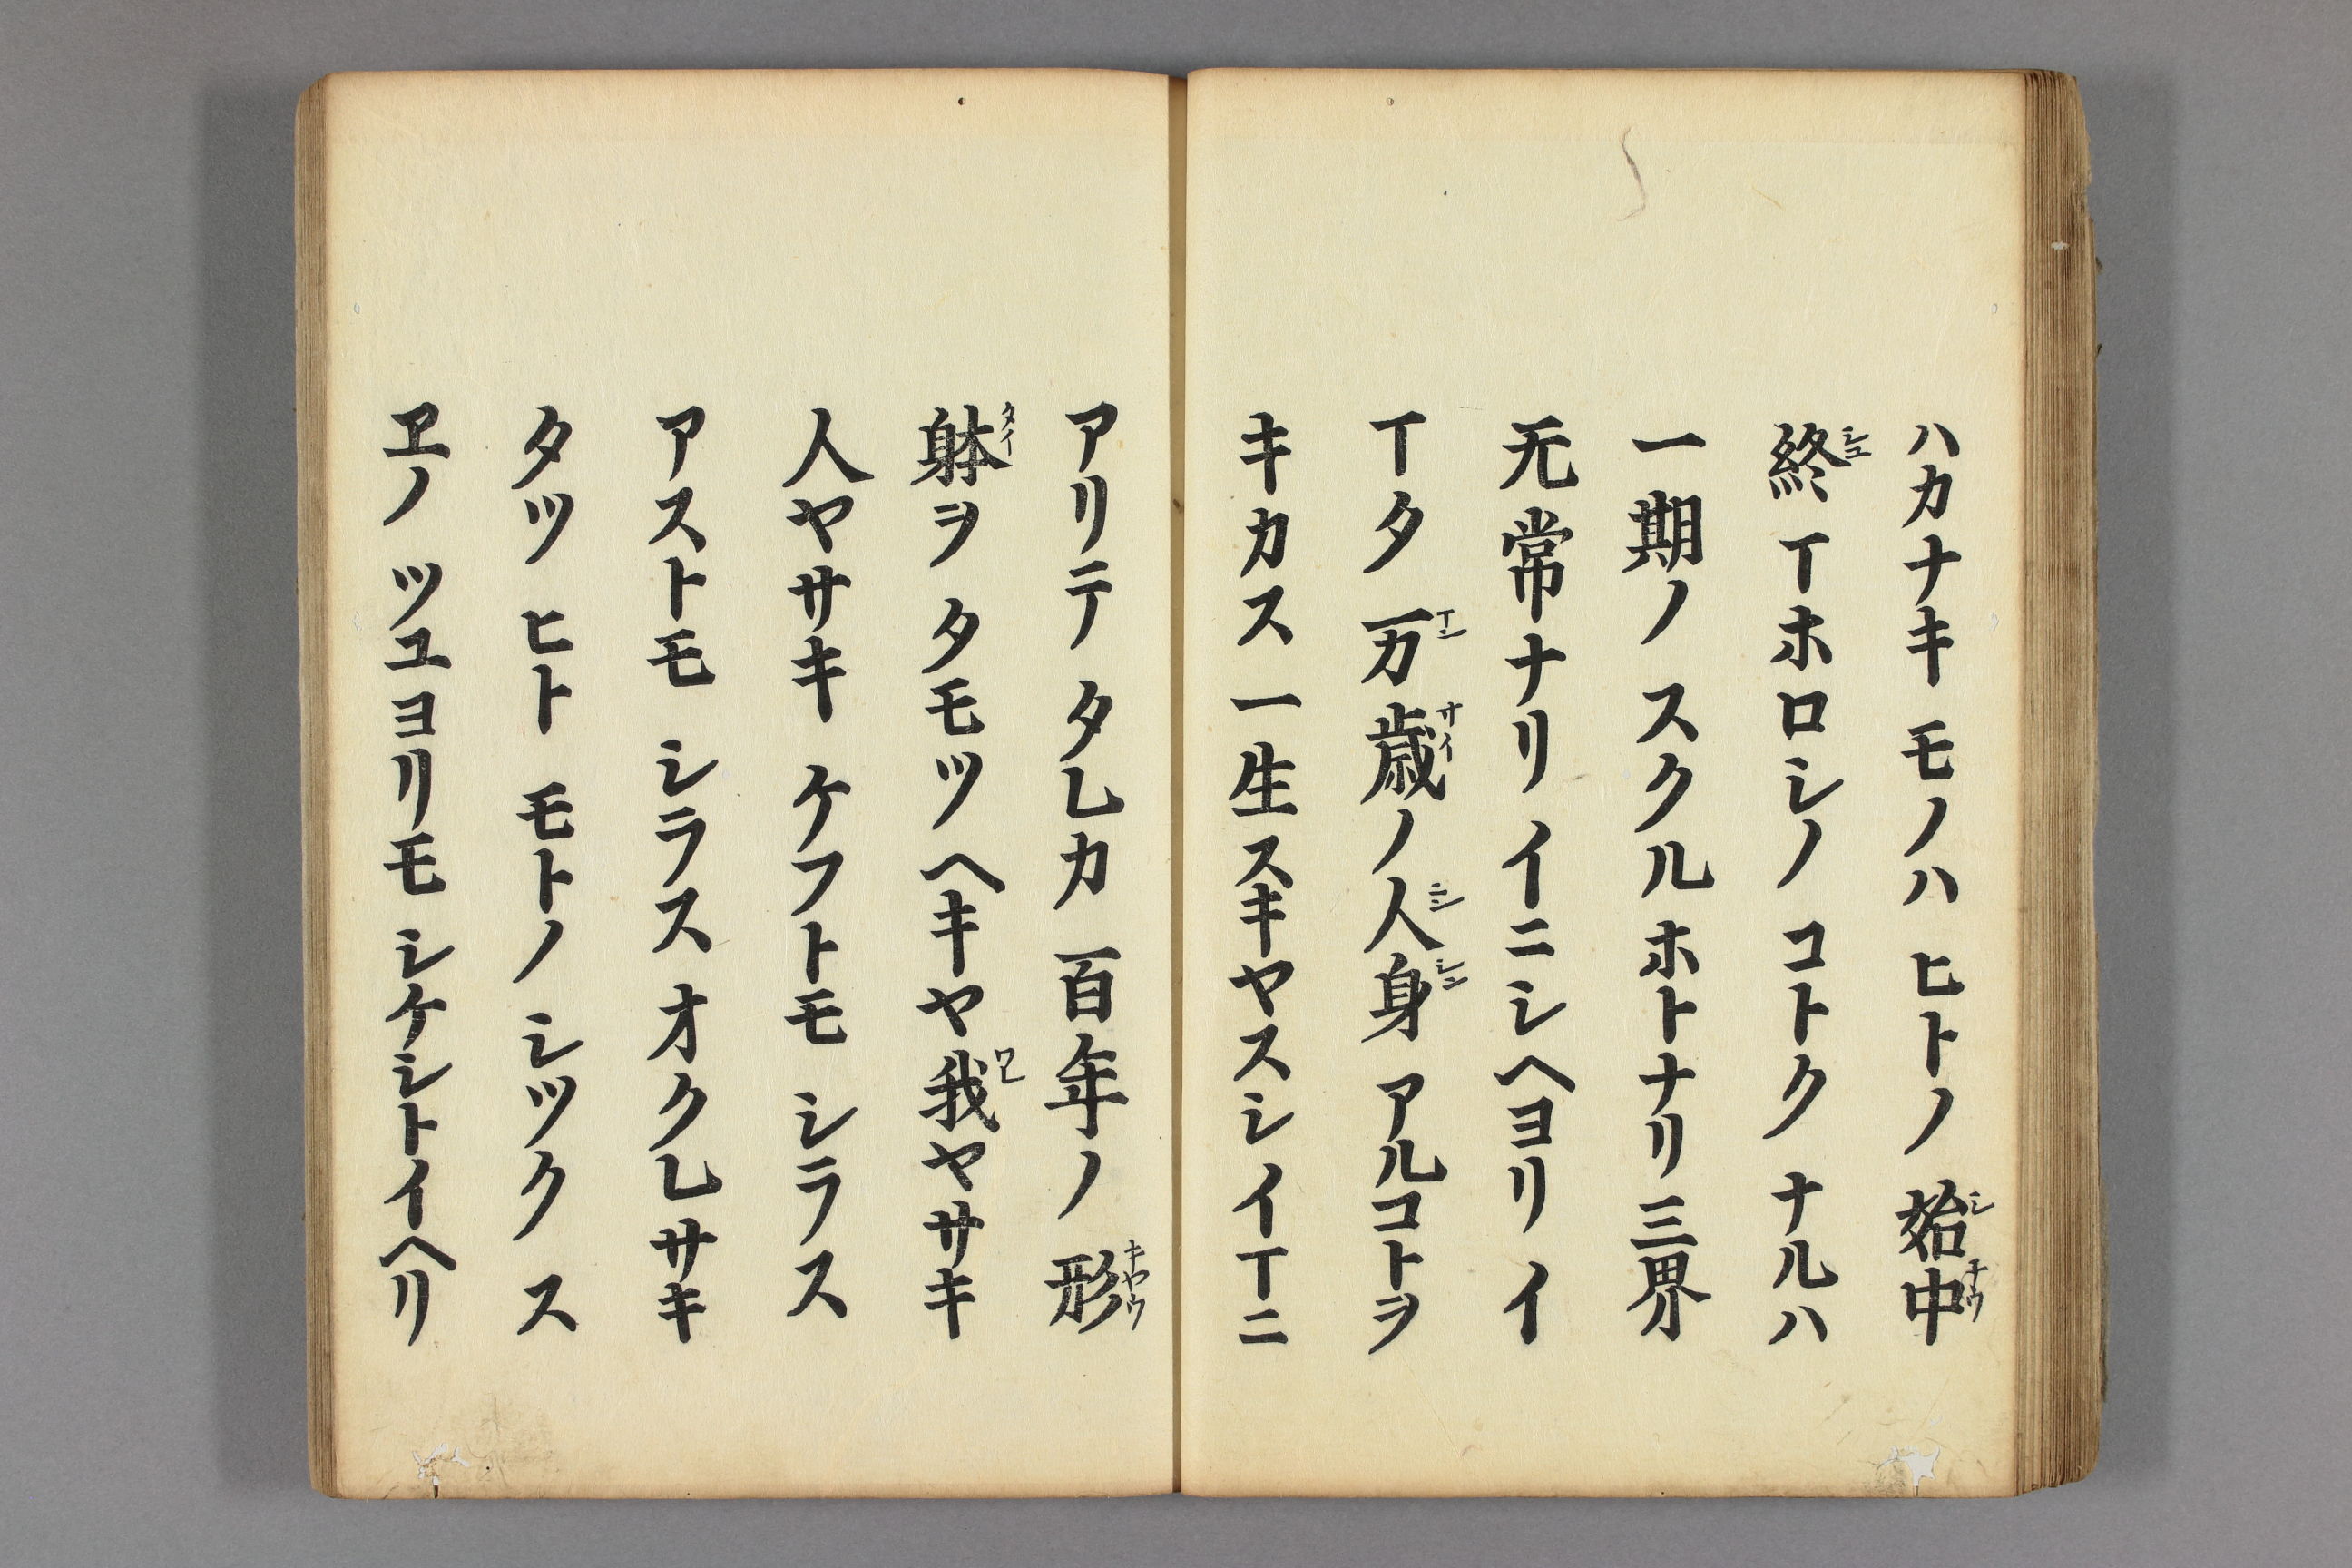 ハカナキモノハヒトノ始中
終マホロシノコトクナルハ
一期ノスクルホトナリ三界
无常ナリイニシヘヨリイ
マタ万歳ノ人身アルコトヲ
キカス一生スキヤスシイマニ
アリテタレカ百年ノ形
躰ヲタモツヘキヤ我ヤサキ
人ヤサキケフトモシラス
アストモシラスオクレサキ
タツヒトモトノシツクス
ヱノツユヨリモシケシトイヘリ